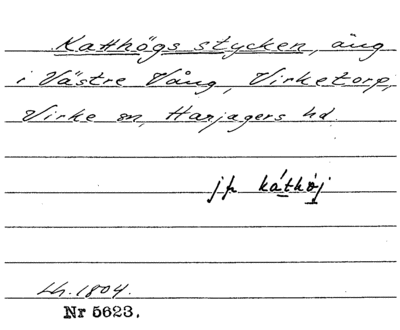 Katthögs stycken, äng
i Västre Vång, Virketorp,
Virke sn, Harjagers hd.
jfr káthöj
Lh. 1804.
Nr 5623.